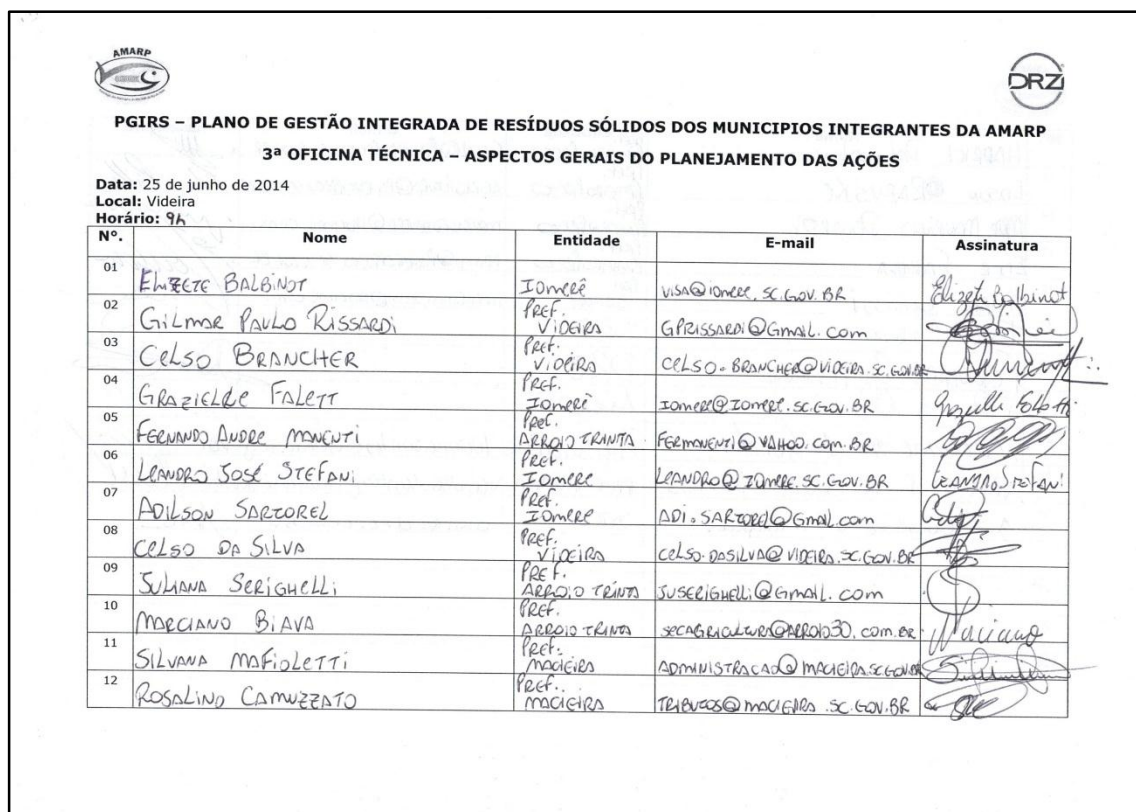 AMARP
DRZ
PGIRS – PLANO DE GESTÃO INTEGRADA DE RESÍDUOS SÓLIDOS DOS MUNICIPIOS INTEGRANTES DA AMARP
3ª OFICINA TÉCNICA – ASPECTOS GERAIS DO PLANEJAMENTO DAS AÇÕES
Data: 25 de junho de 2014
Local: Videira
Horário: 9h
Nº. Nome Entidade E-mail Assinatura
01 ELIZETE BALBINOT IOMERÊ VISA@IOMERE.SC.GOV.BR Elizete Balbinot
02 GILMAR PAULO RISSARDI PREF. VIDEIRA GPRISSARDI@GMAIL.COM
03 CELSO BRANCHER PREF. VIDEIRA CELSO.BRANCHER@VIDEIRA.SC.GOV.BR
04 GRAZIELLE FALETT PREF. IOMERÊ IOMERE@IOMERE.SC.GOV.BR
05 FERNANDO ANDRE MANENTI PREF. ARROIO TRINTA FERMANENTI@YAHOO.COM.BR
06 LEANDRO JOSÉ STEFANI PREF. IOMERE LEANDRO@IOMERE.SC.GOV.BR LEANDRO STEFANI
07 ADILSON SARTOREL PREF. IOMERE ADI.SARTOREL@GMAIL.COM
08 CELSO DA SILVA PREF. VIDEIRA CELSO.DASILVA@VIDEIRA.SC.GOV.BR
09 JULIANA SERIGHELLI PREF. ARROIO TRINTA JUSERIGHELLI@GMAIL.COM
10 MARCIANO BIAVA PREF. ARROIO TRINTA SECAGRICULTURA@ARROIO30.COM.BR Marciano
11 SILVANA MAFIOLETTI PREF. MACIEIRA ADMINISTRACAO@MACIEIRA.SC.GOV.BR
12 ROSALINO CAMUZZATO PREF. MACIEIRA TRIBUTOS@MACIEIRA.SC.GOV.BR